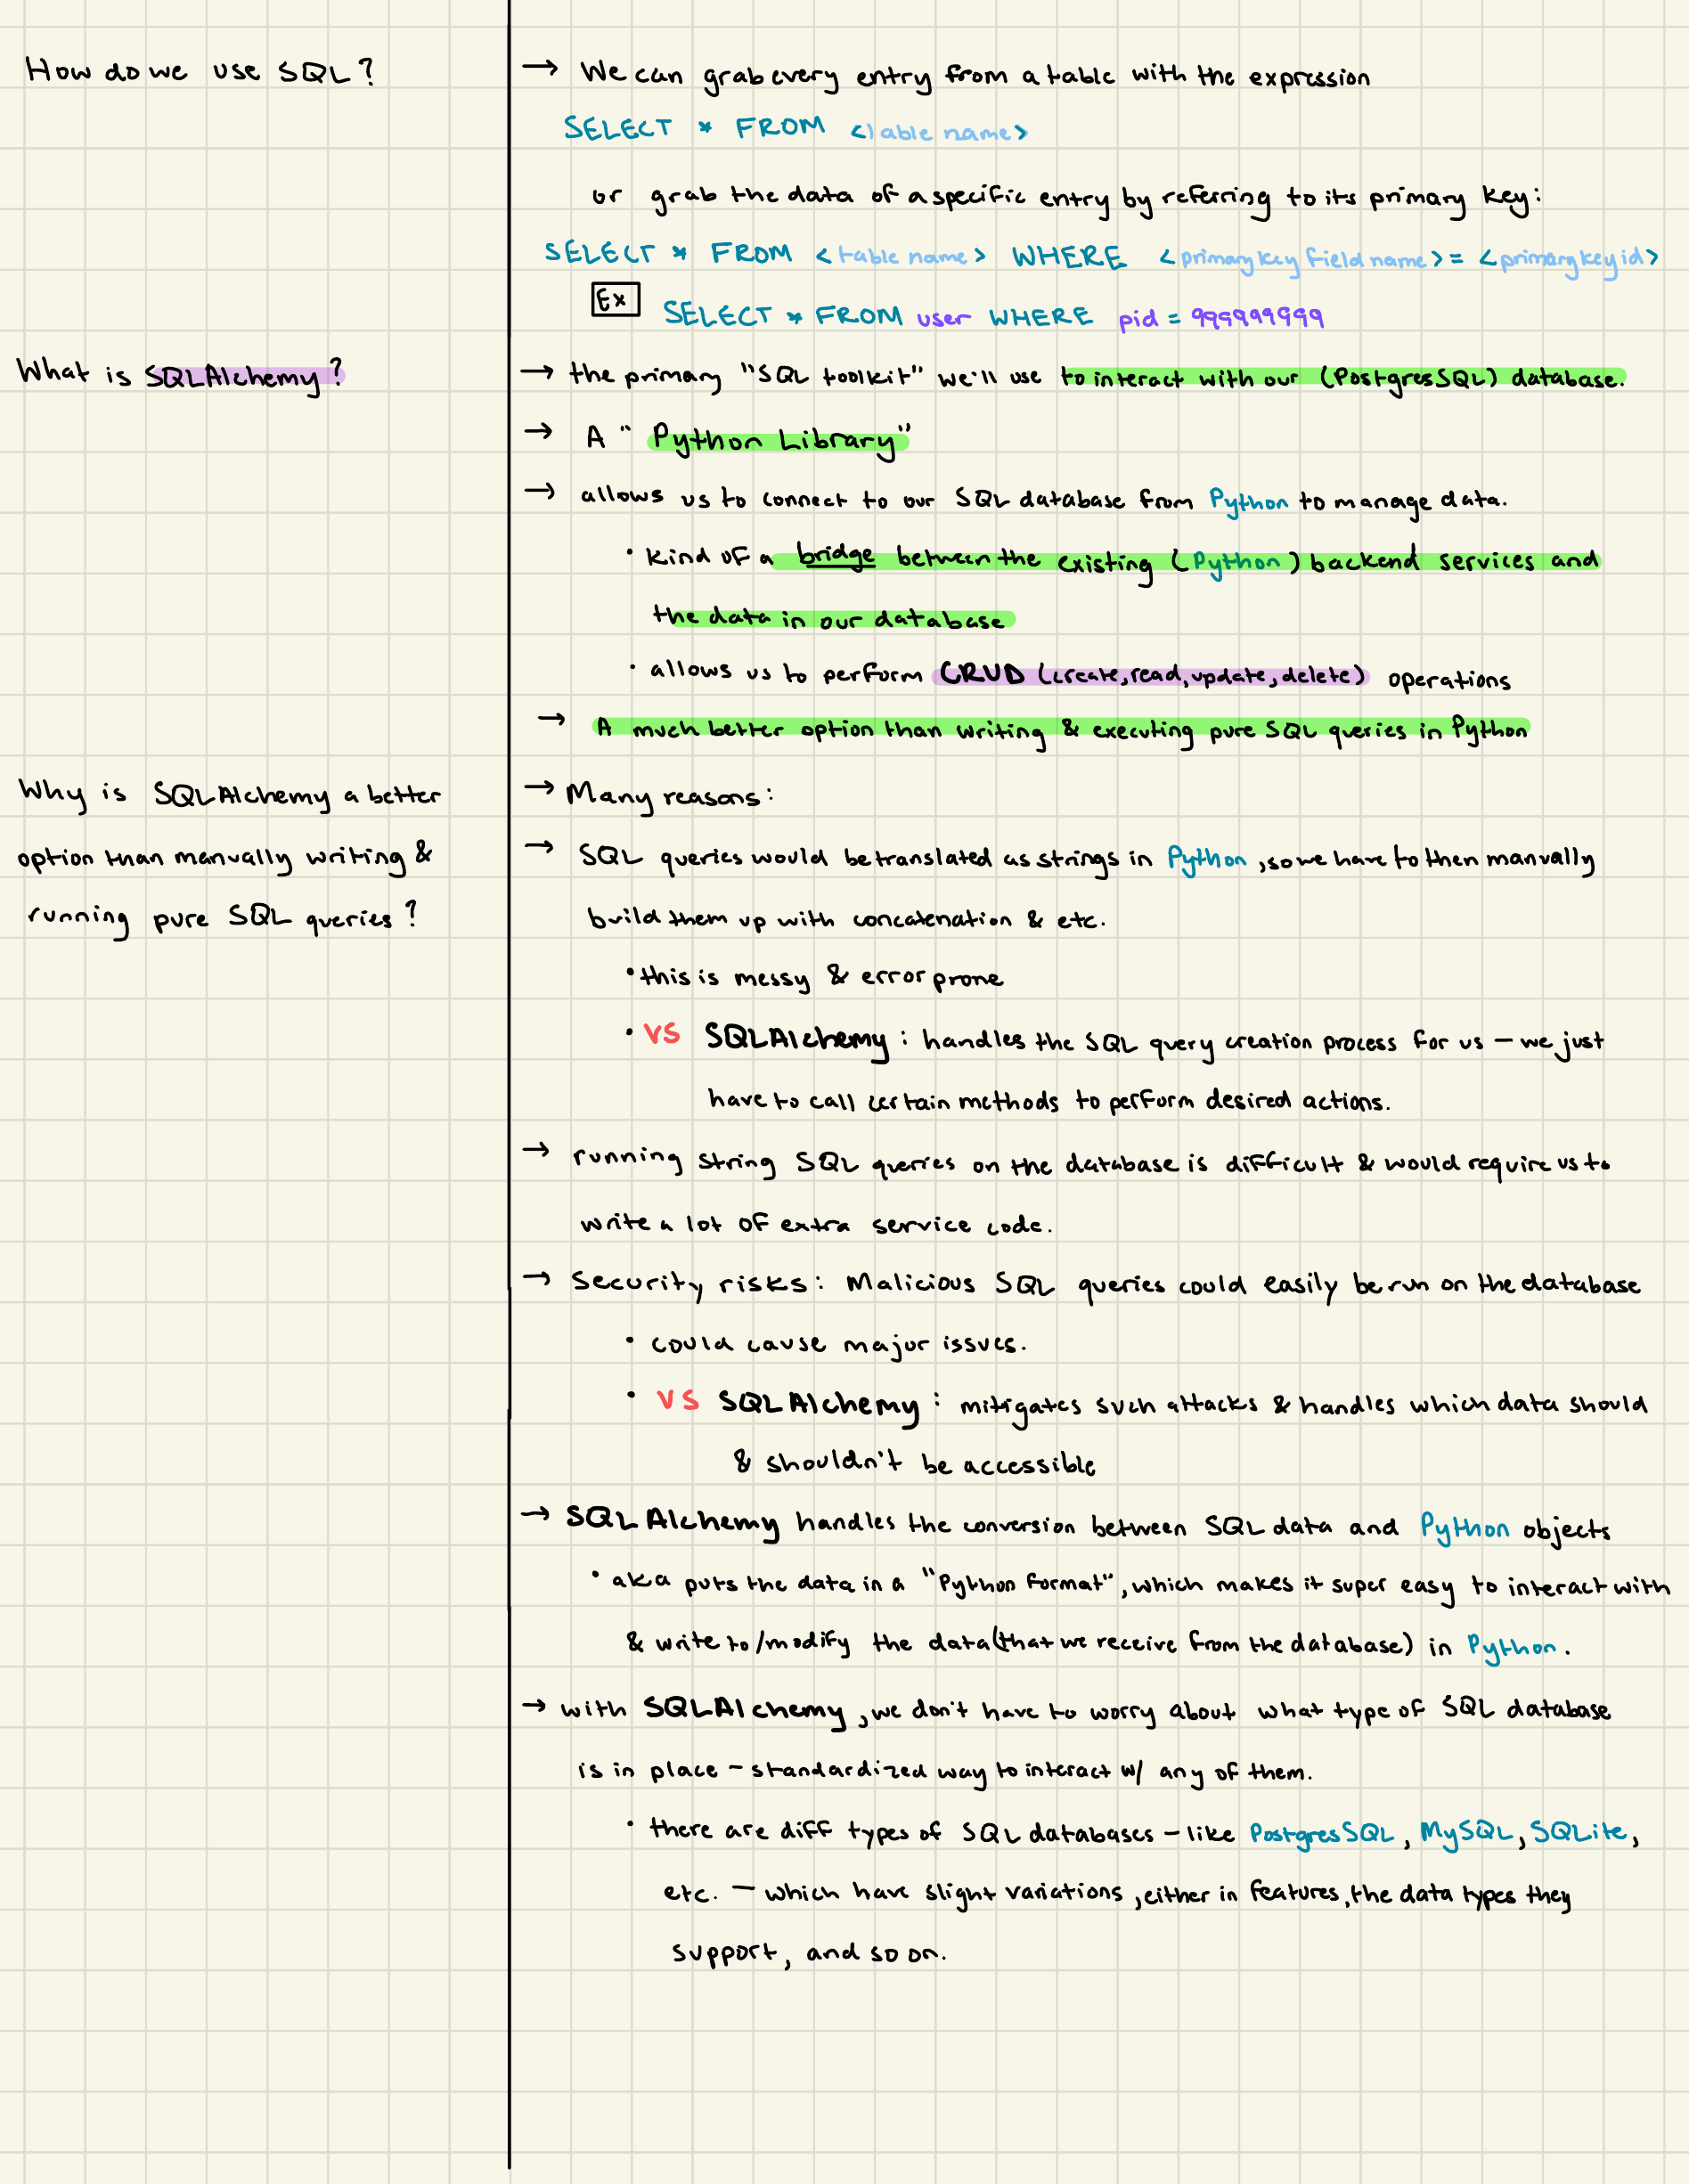 How do we use SQL?
→ We can grab every entry from a table with the expression
SELECT * FROM <table name>
or grab the data of a specific entry by referring to its primary key:
SELECT * FROM <table name> WHERE <primary key field name> = <primary key id>
Ex SELECT * FROM user WHERE pid = 999999999
What is SQLAlchemy?
→ the primary "SQL toolkit" we'll use to interact with our (PostgresSQL) database.
→ A "Python Library"
→ allows us to connect to our SQL database from Python to manage data.
• kind of a bridge between the existing (Python) backend services and
the data in our database
• allows us to perform CRUD (create, read, update, delete) operations
→ A much better option than writing & executing pure SQL queries in Python
Why is SQLAlchemy a better
option than manually writing &
running pure SQL queries?
→ Many reasons:
→ SQL queries would be translated as strings in Python, so we have to then manually
build them up with concatenation & etc.
• this is messy & error prone
• VS SQLAlchemy: handles the SQL query creation process for us – we just
have to call certain methods to perform desired actions.
→ running string SQL queries on the database is difficult & would require us to
write a lot of extra service code.
→ Security risks: Malicious SQL queries could easily be run on the database
• could cause major issues.
• VS SQLAlchemy: mitigates such attacks & handles which data should
& shouldn't be accessible
→ SQLAlchemy handles the conversion between SQL data and Python objects
• aka puts the data in a "Python format", which makes it super easy to interact with
& write to/modify the data (that we receive from the database) in Python.
→ with SQLAlchemy, we don't have to worry about what type of SQL database
is in place – standardized way to interact w/ any of them.
• there are diff types of SQL databases – like PostgresSQL, MySQL, SQLite,
etc. – which have slight variations, either in features, the data types they
support, and so on.